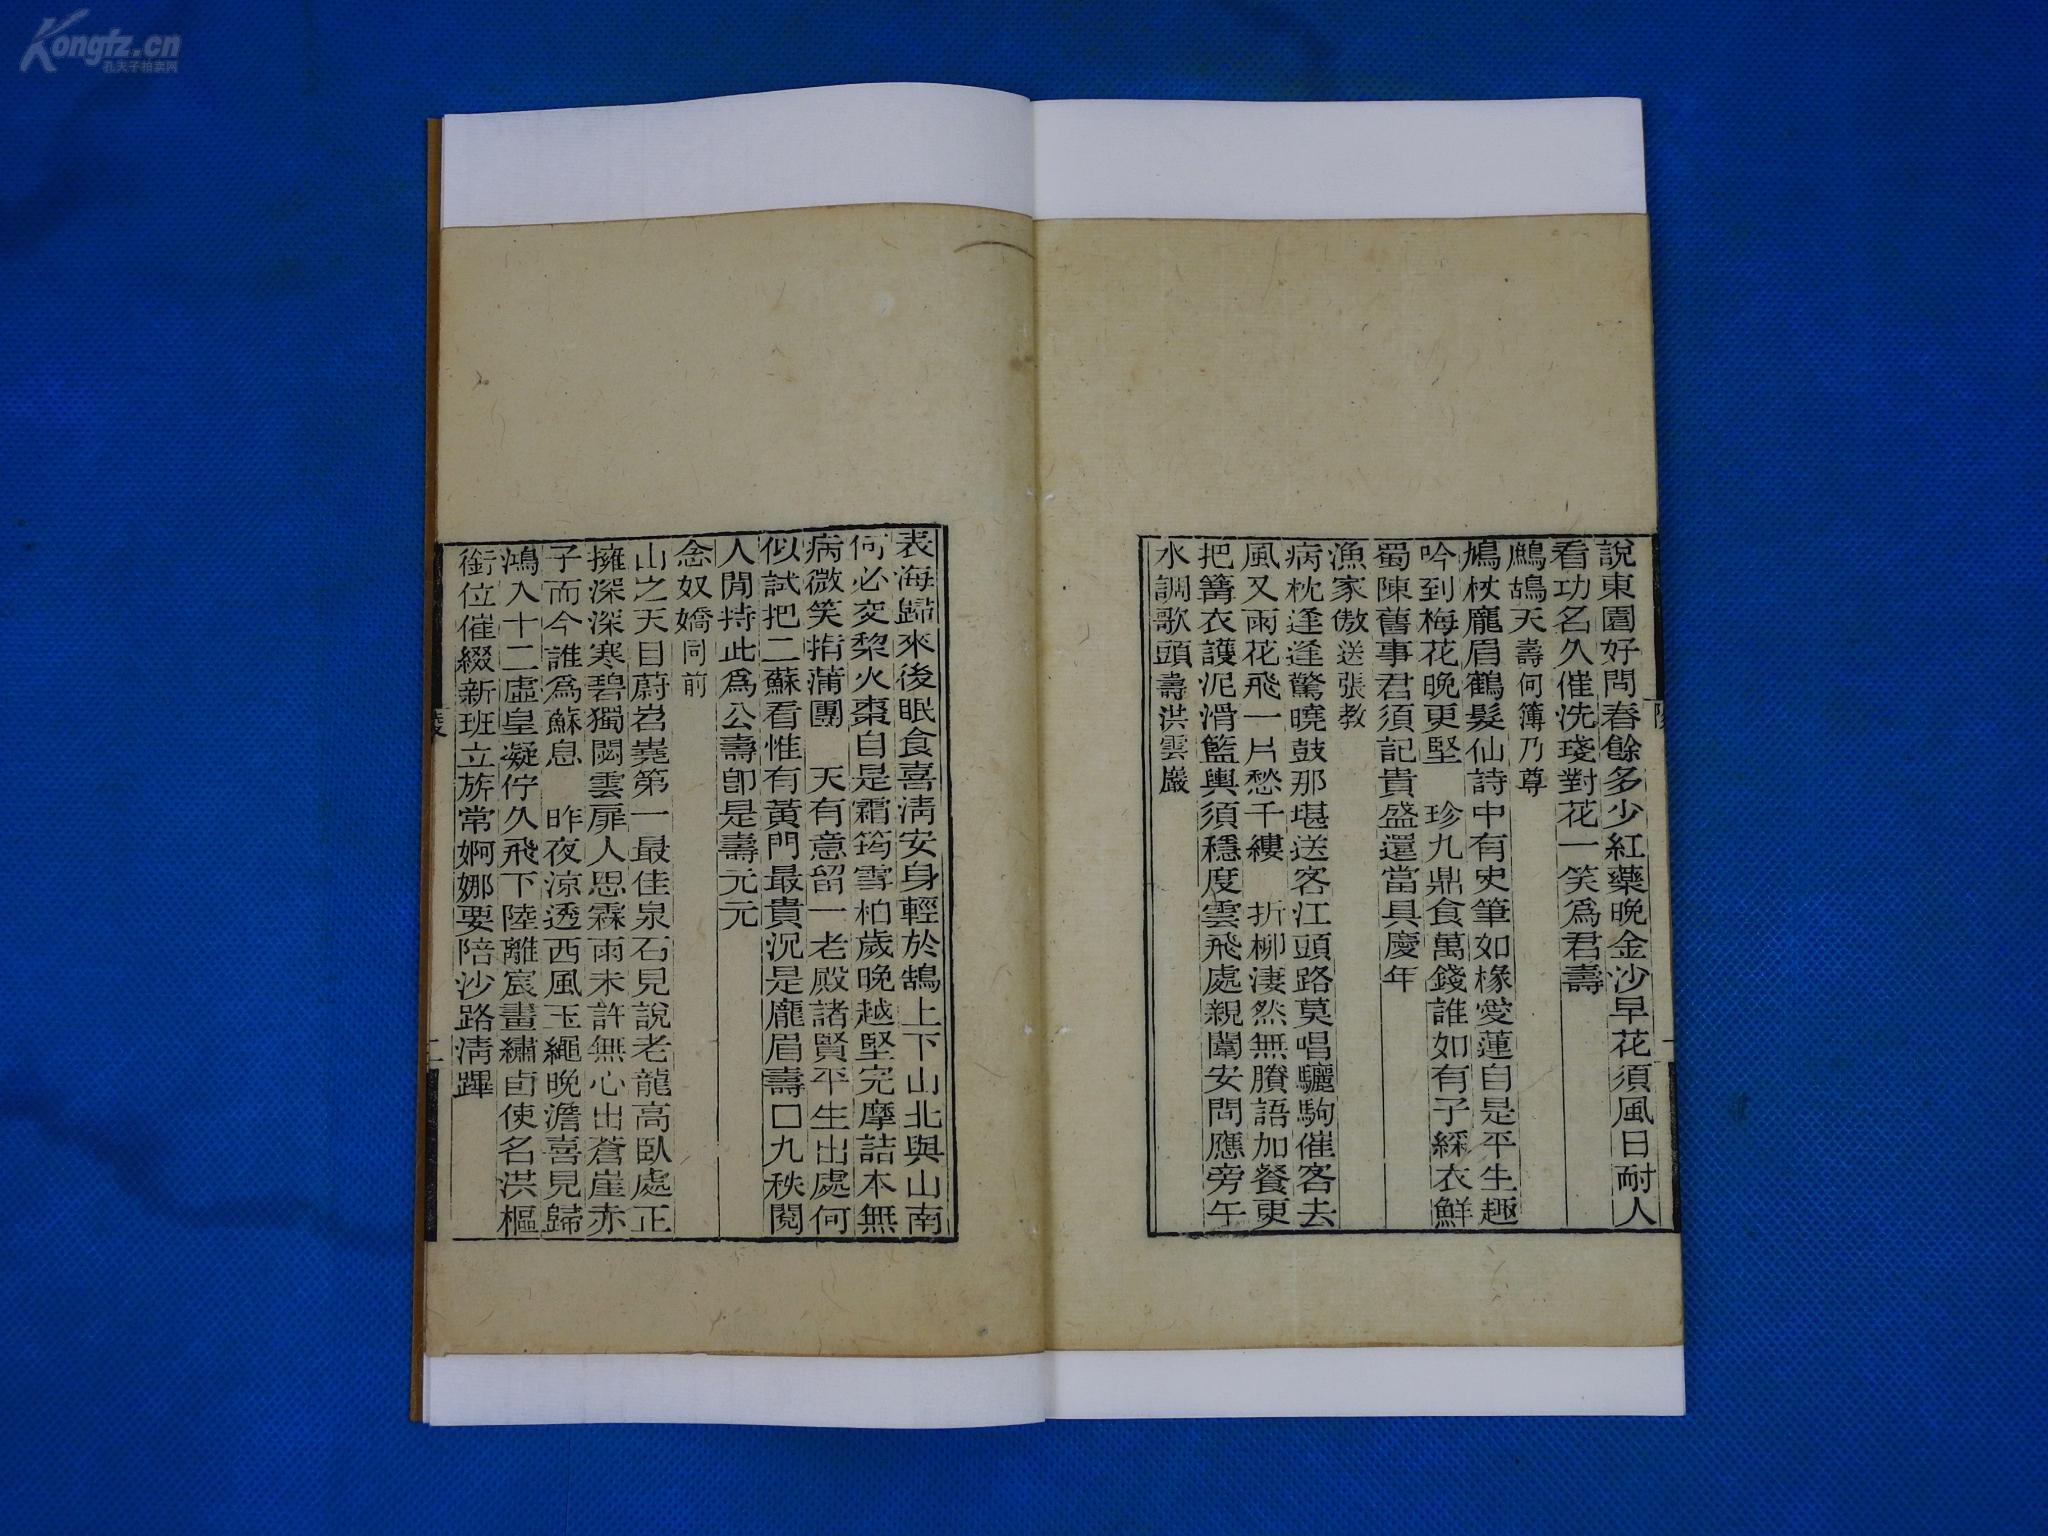 說東園好問春餘多少紅藥晚金沙早花須風日耐人
看功名久催洗琖對花一笑為君壽
鷓鴣天 壽何簿乃尊
鳩杖龐眉鶴髮仙詩中有史筆如椽愛蓮自是平生趣
吟到梅花晚更堅 珍九鼎食萬錢誰如有子綵衣鮮
蜀陳舊事君須記貴盛還當具慶年
漁家傲 送張教
病枕逢逢驚曉鼓那堪送客江頭路莫唱驪駒催客去
風又雨花飛一片愁千縷 折柳淒然無賸語加餐更
把篝衣護泥滑籃輿須穩度雲飛處親闈安問應旁午
水調歌頭 壽洪雲巖
表海歸來後眠食喜淸安身輕於鵠上下山北與山南
何必交棃火棗自是霜筠雪柏歲晚越堅完摩詰本無
病微笑指蒲團 天有意留一老殿諸賢平生出處何
似試把二蘇看惟有黃門最貴況是龐眉壽口九秩閱
人閒持此爲公壽卽是壽元元
念奴嬌 同前
山之天目蔚岧嶤第一最佳泉石見說老龍高臥處正
擁深深寒碧獨閟雲扉人思霖雨未許無心出蒼崖赤
子而今誰爲蘇息 昨夜涼透西風玉繩晚澹喜見歸
鴻入十二虛皇凝佇久飛下陸離宸畫繡卣使名洪樞
銜位催綴新班立族常婀娜要陪沙路淸蹕
二
Kongfz.cn
孔夫子拍卖网